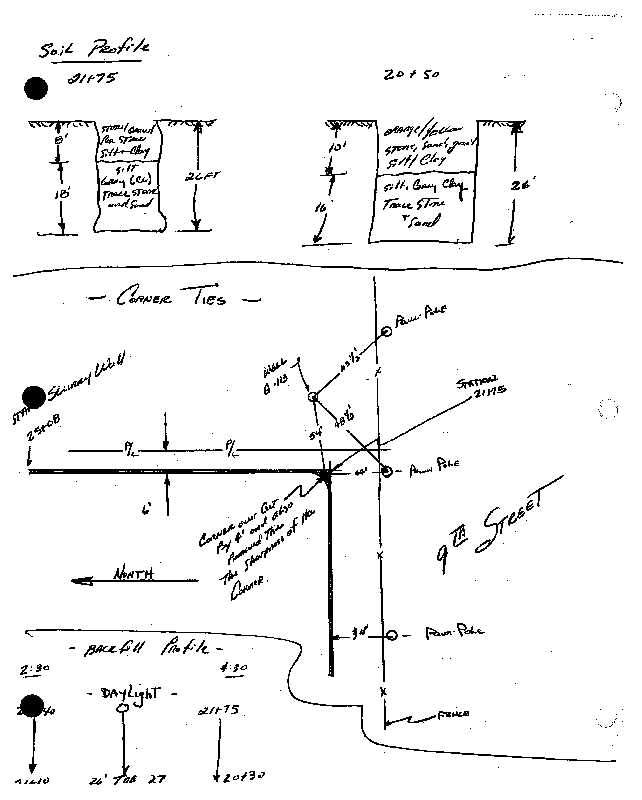 Soil Profile
21+75
20+50
8'
Silt & Clay
18'
Silt
Gray (CL)
Trace Stone
and Sand
26 FT
10'
Orange/Yellow
Stone, Sand, gravel
Silt/Clay
16'
Silt, Gray Clay
Trace Stone
+ Sand
26'
- Corner Ties -
Power Pole
Well
43½'
Slurry Wall
Station
21+75
25+08
54'
48½'
P/L
P/L
Power Pole
6'
Corner over Cut
By 4' and also
The Sharpness of the
Corner.
9TH Street
North
- Backfill Profile -
2:30
4:30
34'
- Power Pole
- Daylight -
21+75
Fence
26' TOB 27
20+30